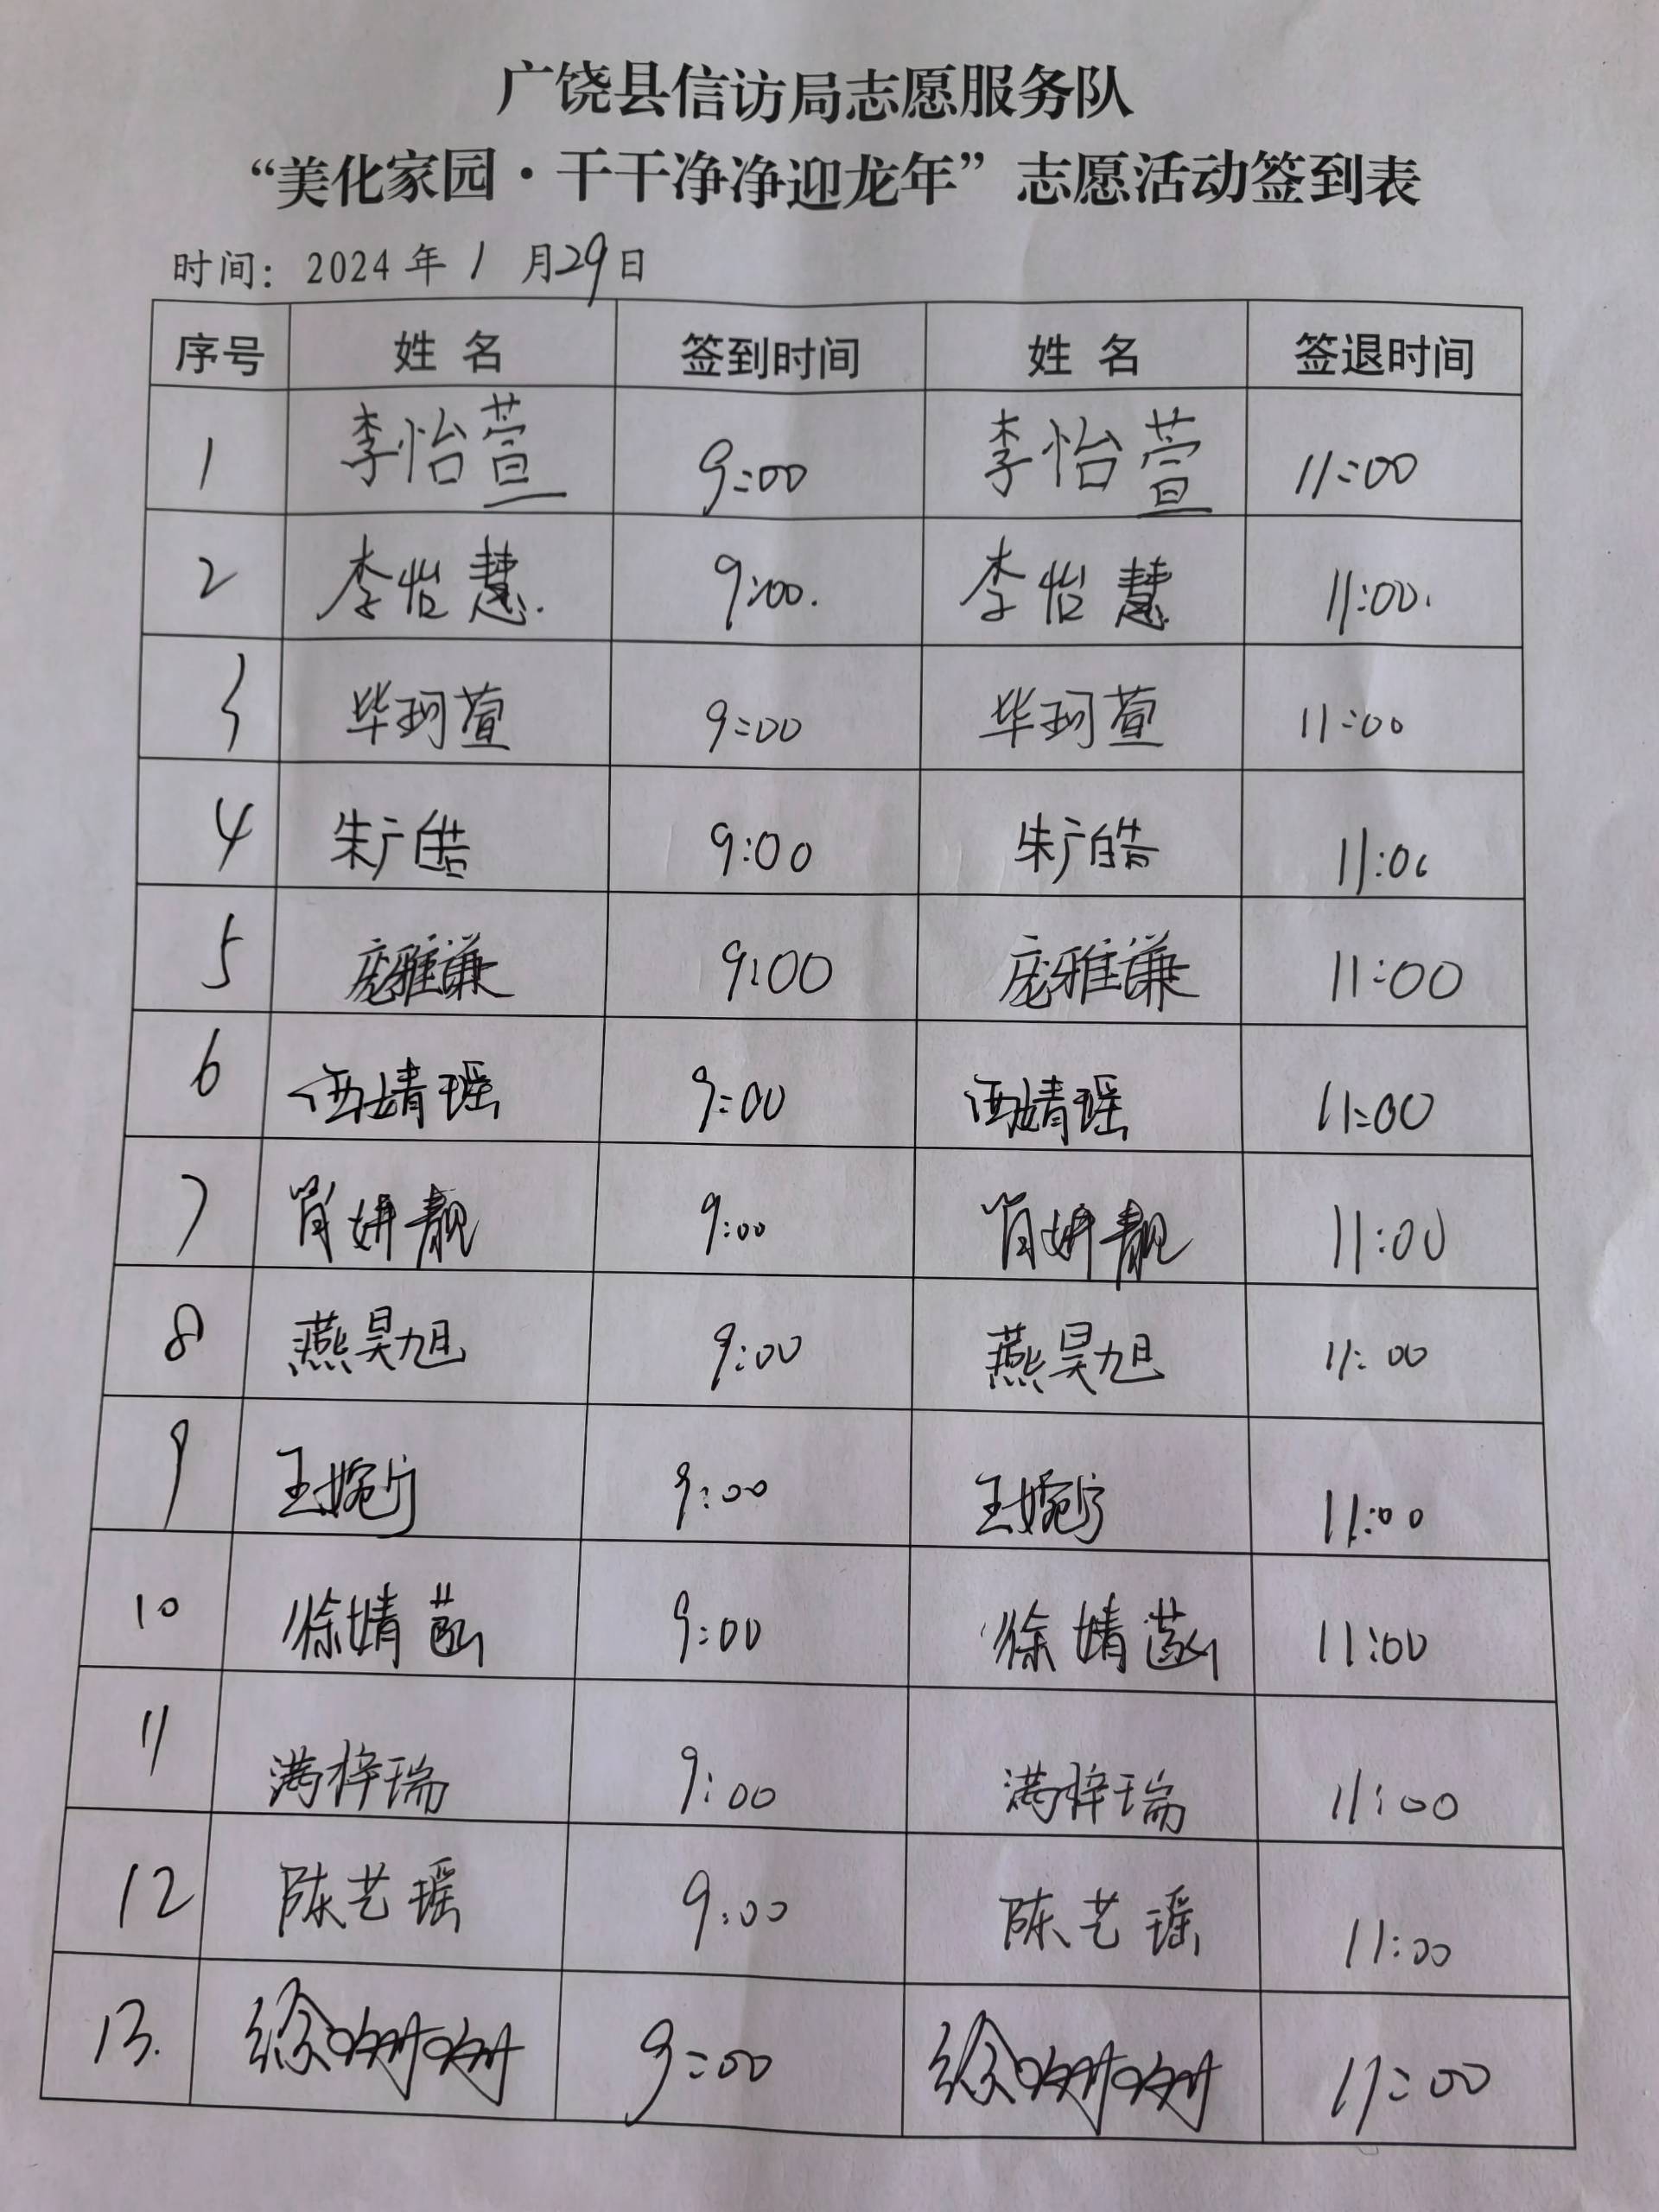 广饶县信访局志愿服务队
“美化家园·干干净净迎龙年”志愿活动签到表
时间：2024年1月29日
序号 姓名 签到时间 姓名 签退时间
1 李怡萱 9:00 李怡萱 11:00
2 李怡慧. 9:00. 李怡慧 11:00.
3 毕珂萱 9:00 毕珂萱 11:00
4 朱广皓 9:00 朱广皓 11:00
5 庞雅谦 9:00 庞雅谦 11:00
6 婧瑶 9:00 婧瑶 11:00
7 肖妍靓 9:00 肖妍靓 11:00
8 燕昊旭 9:00 燕昊旭 11:00
9 王婉宁 9:00 王婉宁 11:00
10 徐婧菡 9:00 徐婧菡 11:00
11 满梓瑞 9:00 满梓瑞 11:00
12 陈艺瑶 9:00 陈艺瑶 11:00
13. 9:00 11:00